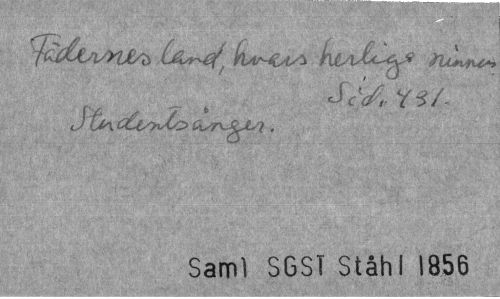 Fädernesland, hvars herliga minnen
Sid. 431.
Studentsånger.
Saml SGST Ståhl 1856